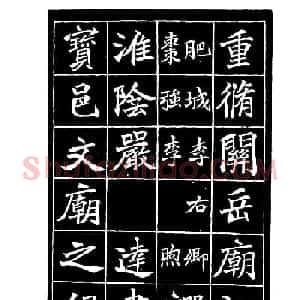 重脩關岳廟
肥城李右卿
棗強李煦
淮陰嚴達
寶邑文廟之